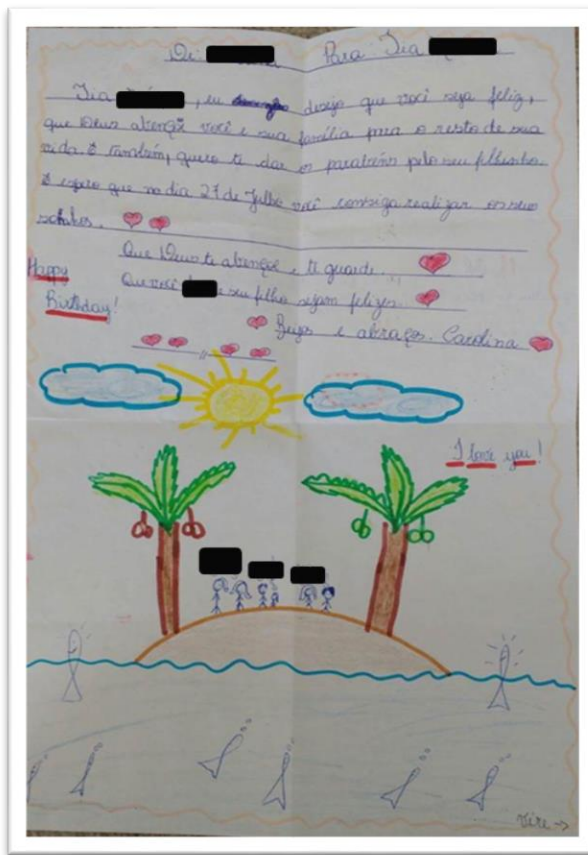 De: Para: Tia
Tia , eu desejo que você seja feliz,
que Deus abençõ você e sua família para o resto de sua
vida. E também, quero te dar os parabéns pelo seu filhinho.
E espero que no dia 27 de Julho você consiga realizar os seus
sonhos.
Que Deus te abençoe e te guarde.
Happy
Que você e seu filho sejam felizes.
Birthday!
Beijos e abraços. Carolina
I love you!
Vire →